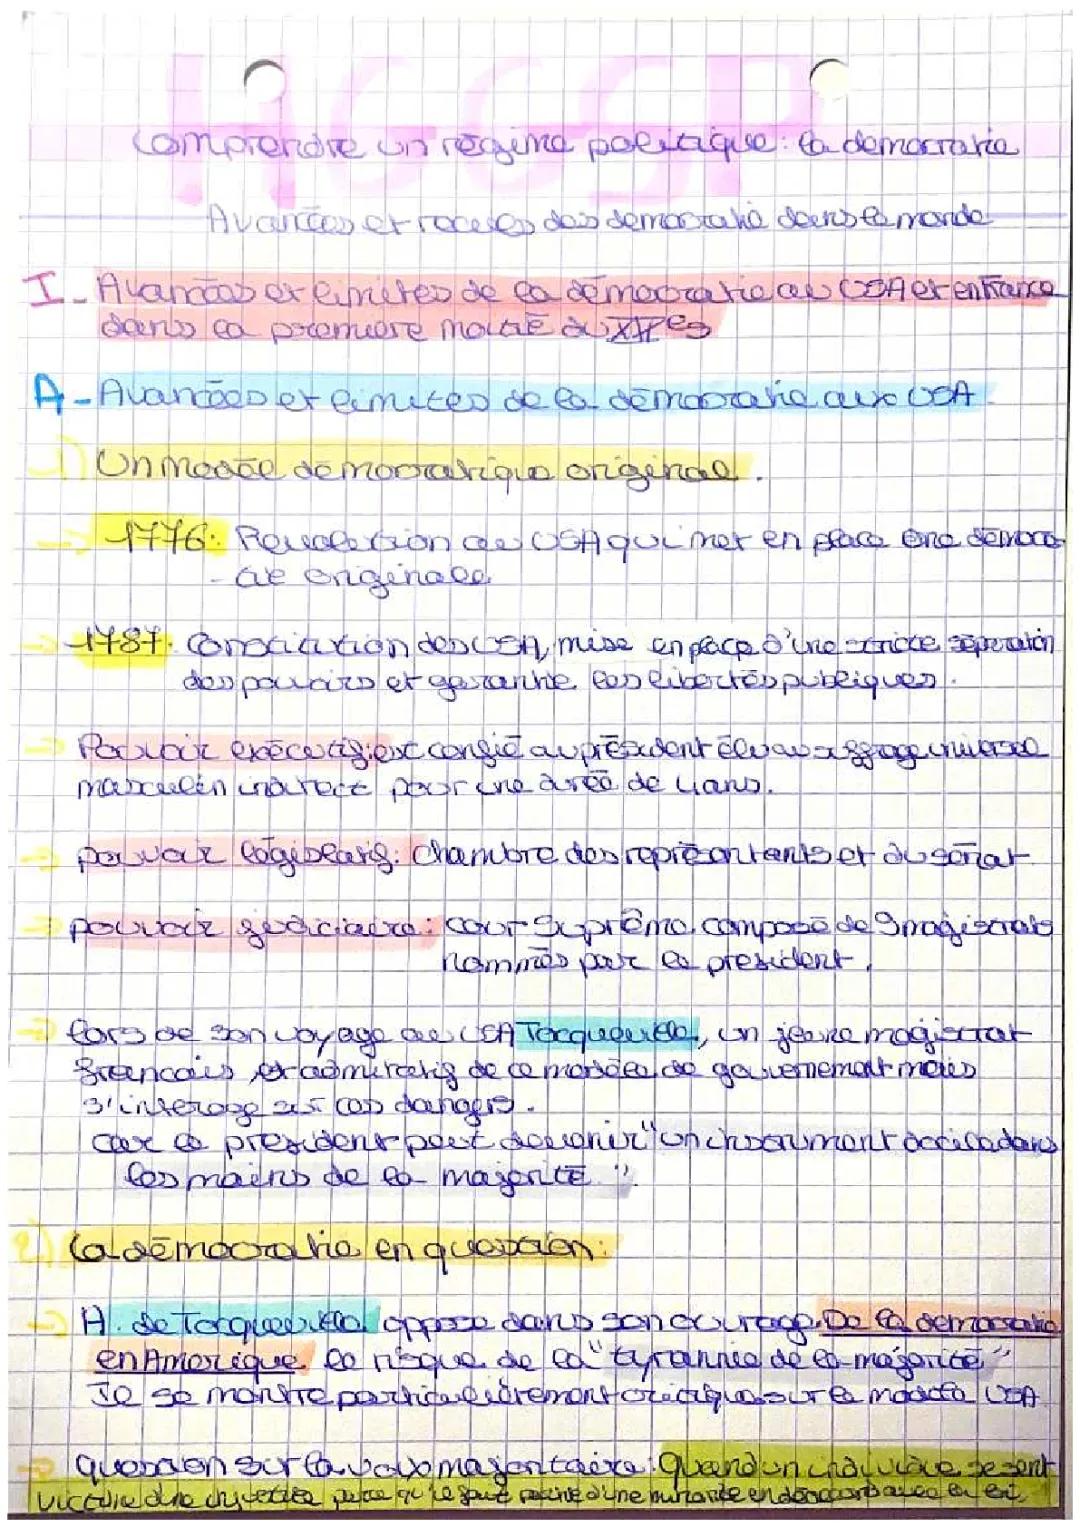 HGGSP
Comprendre un régime politique : la démocratie
Avancées et reculs des démocratie dans le monde
I - Avancées et limites de la démocratie au USA et en France
dans la première moitié du XIXe s
A - Avancées et limites de la démocratie aux USA
1) Un modèle démocratique original.
→ 1776 : Révolution au USA qui met en place une démocra-
-tie originale
→ 1787 : Constitution des USA, mise en place d'une stricte séperation
des pouvoirs et garantie les libertés publiques.
→ Pouvoir exécutif : est confié au président élu au suffrage universel
masculin indirect pour une durée de 4 ans.
→ pouvoir législatif : chambre des représentants et du sénat
→ pouvoir judiciaire : cour suprême composé de 9 magistrats
nommés par le président.
→ lors de son voyage au USA Tocqueville, un jeune magistrat
français, est admiratif de ce modèle de gouvernement mais
s'interoge sur ces dangers.
car le président peut devenir "un instrument docile dans
les mains de la majorité"
2) La démocratie en question :
→ A. de Tocqueville oppose dans son ouvrage De la démocratie
en Amérique le risque de la "tyrannie de la majorité"
Il se montre particulièrement critique sur le modèle USA
→ question sur la voix majoritaire : Quand un individu se sent
victime d'une injustice parce qu'il fait partie d'une minorité en désaccord avec